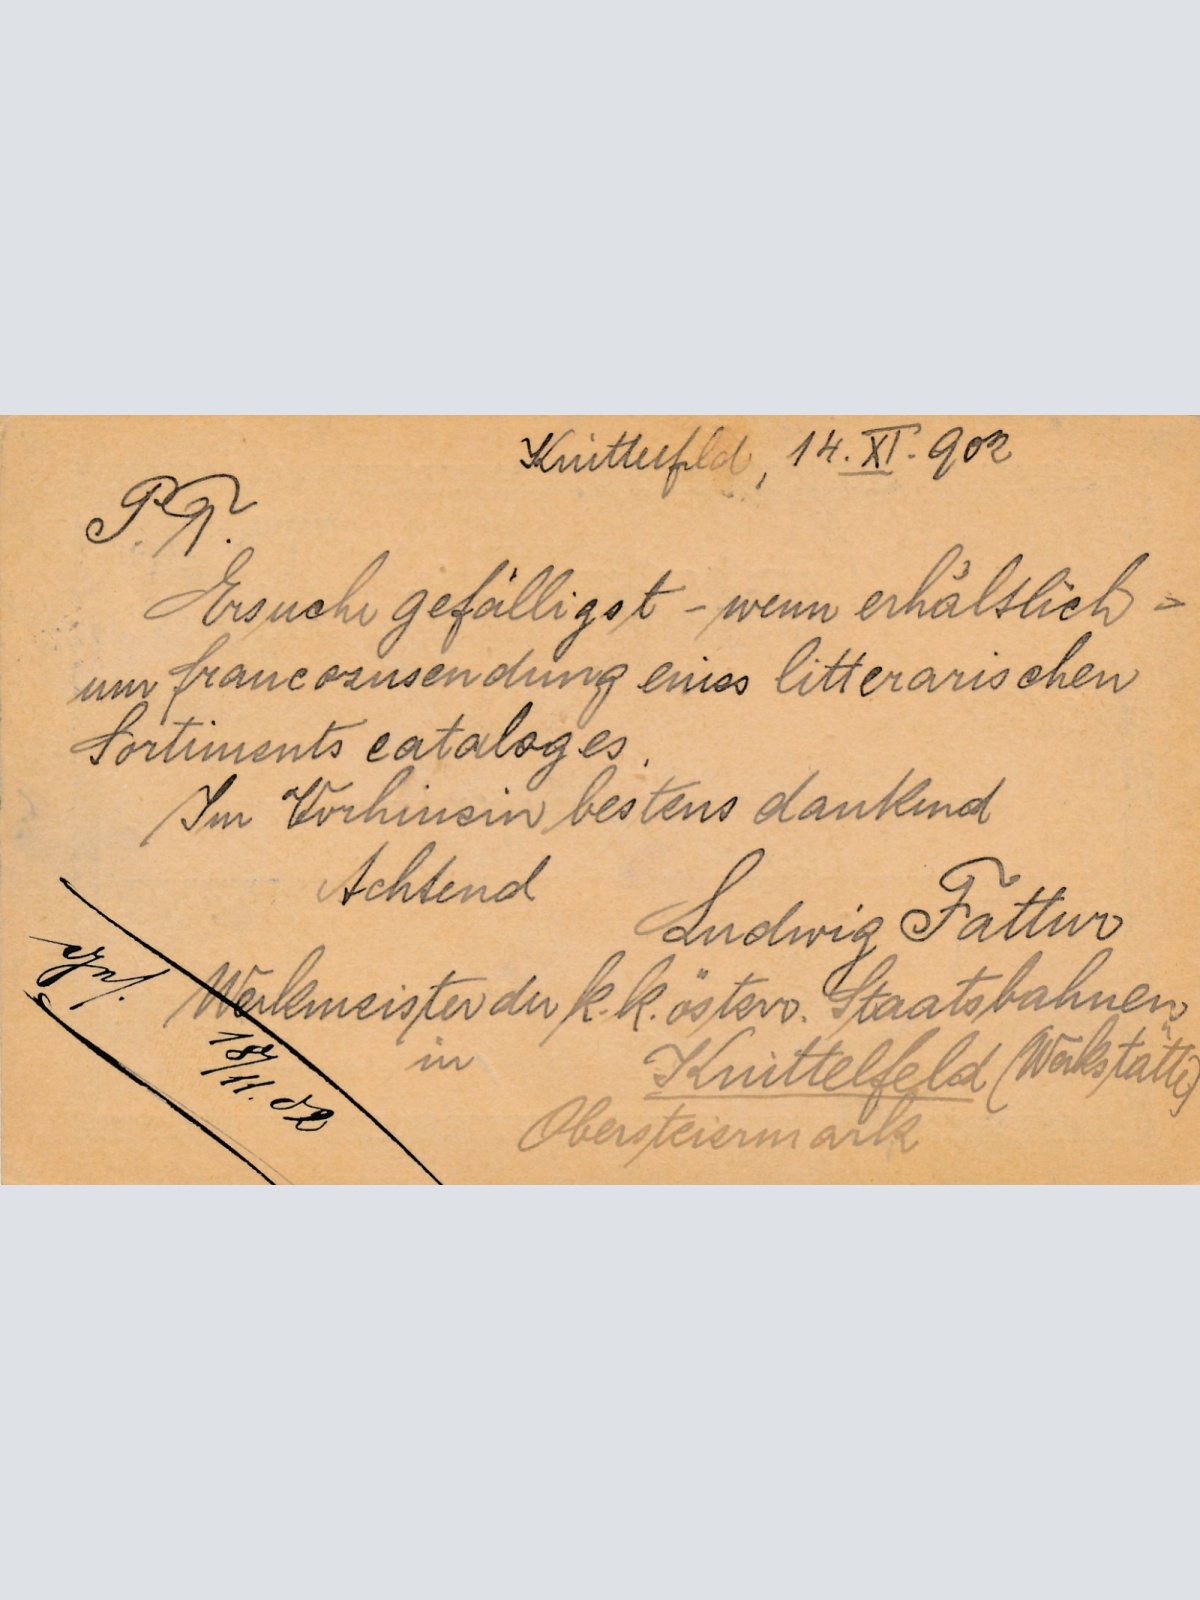 Knittelfeld, 14. XI. 902
P. T.
Ersuche gefälligst - wenn erhältlich -
um francozusendung eines litterarischen
Sortimentscataloges.
Im Vorhinein bestens dankend
Achtend
Ludwig Fattur
Werkmeister der k. k. österr. Staatsbahnen
in Knittelfeld (Werkstätte)
Obersteiermark
18/11. 02